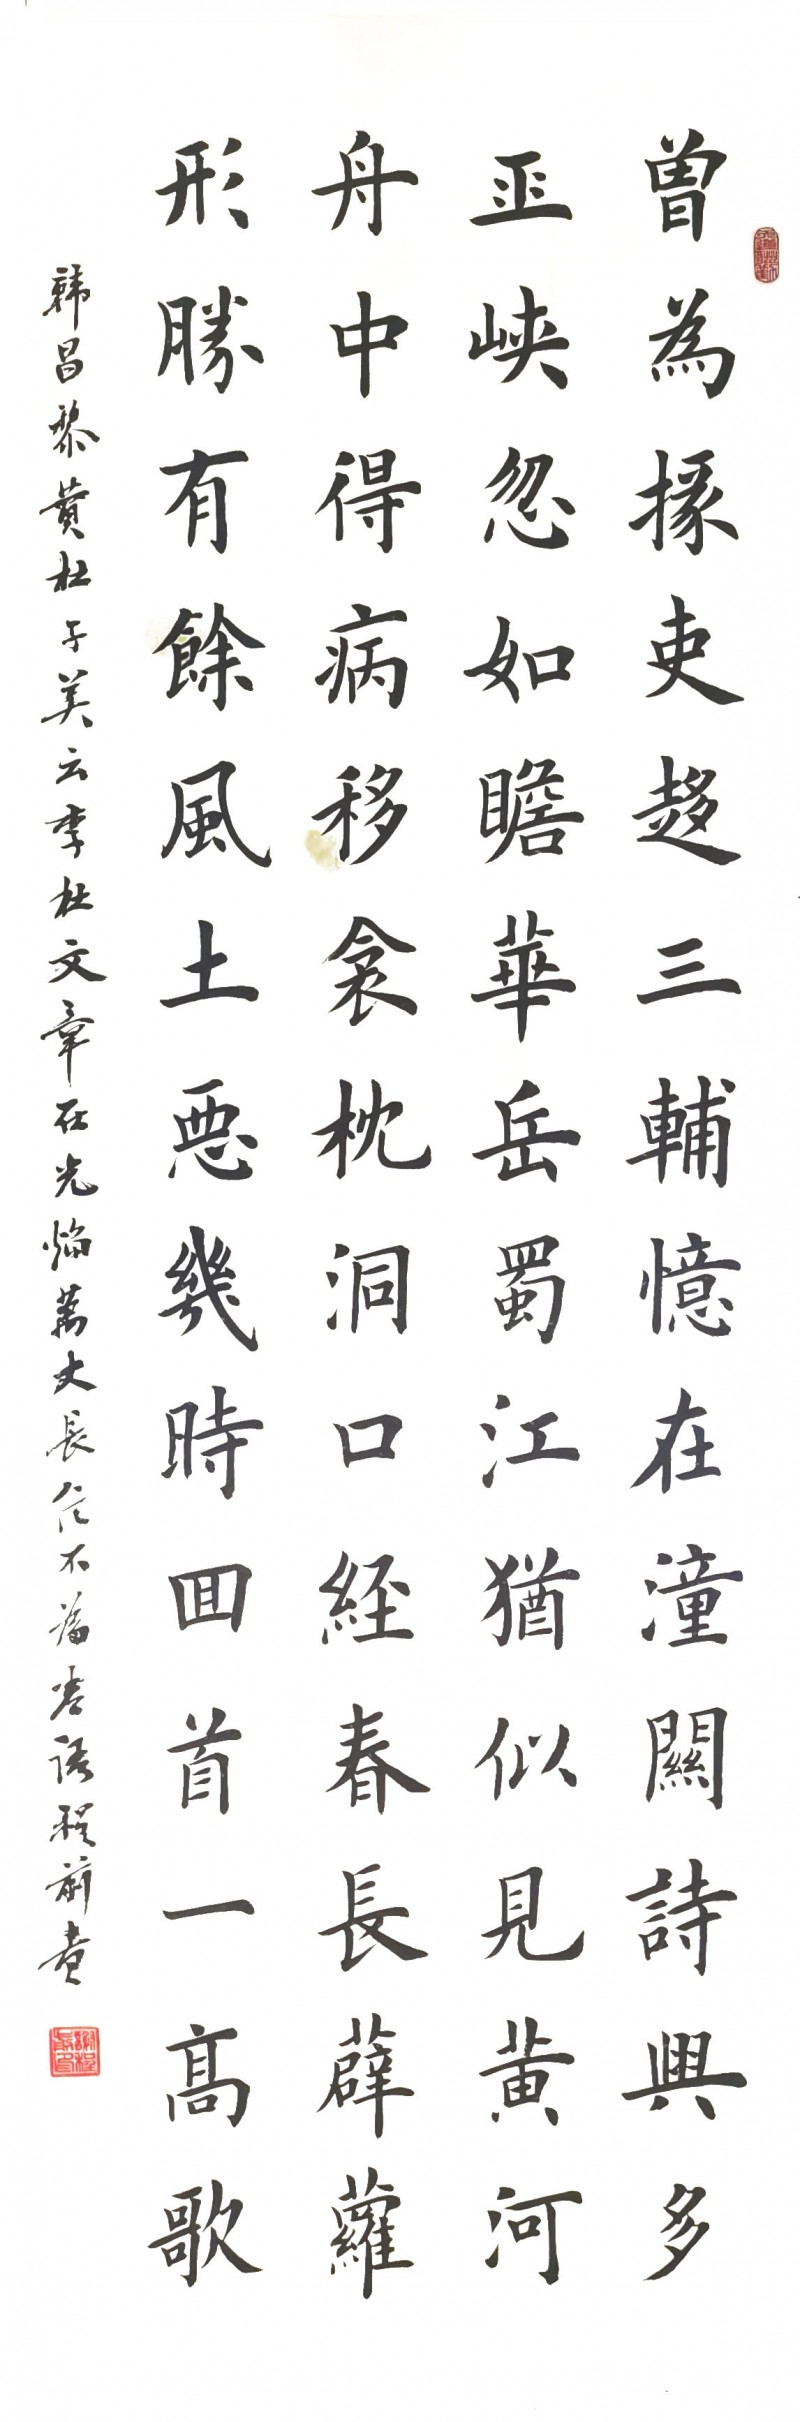 曾為掾吏趍三輔憶在潼關詩興多
巫峡忽如瞻華岳蜀江猶似見黄河
舟中得病移衾枕洞口経春長薜蘿
形勝有餘風土悪幾時囬首一髙歌
韓昌黎贊杜子美云李杜文章在光焰萬丈長信不語程前書